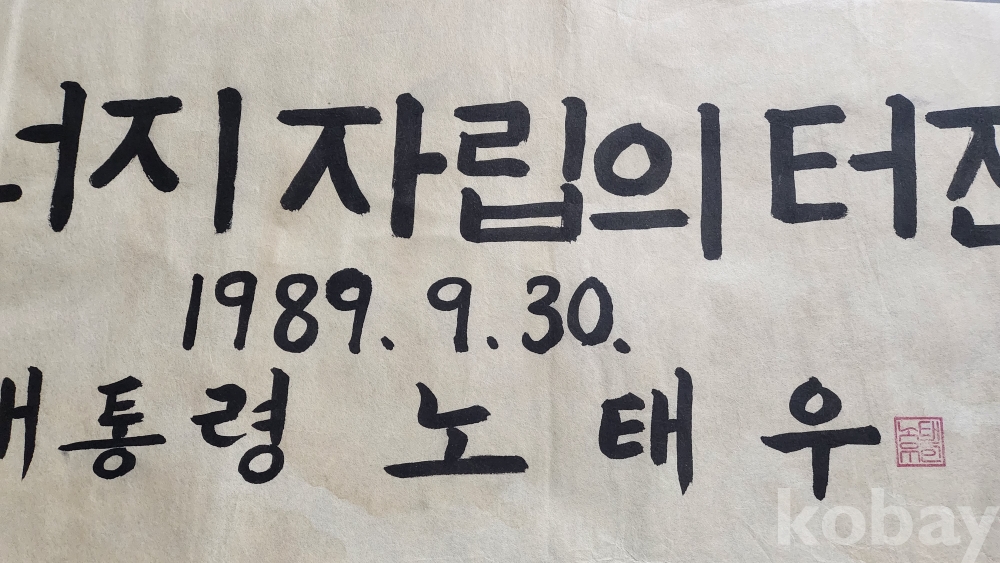 너지 자립의 터전
1989. 9. 30.
대통령 노태우
노태우인
kobay